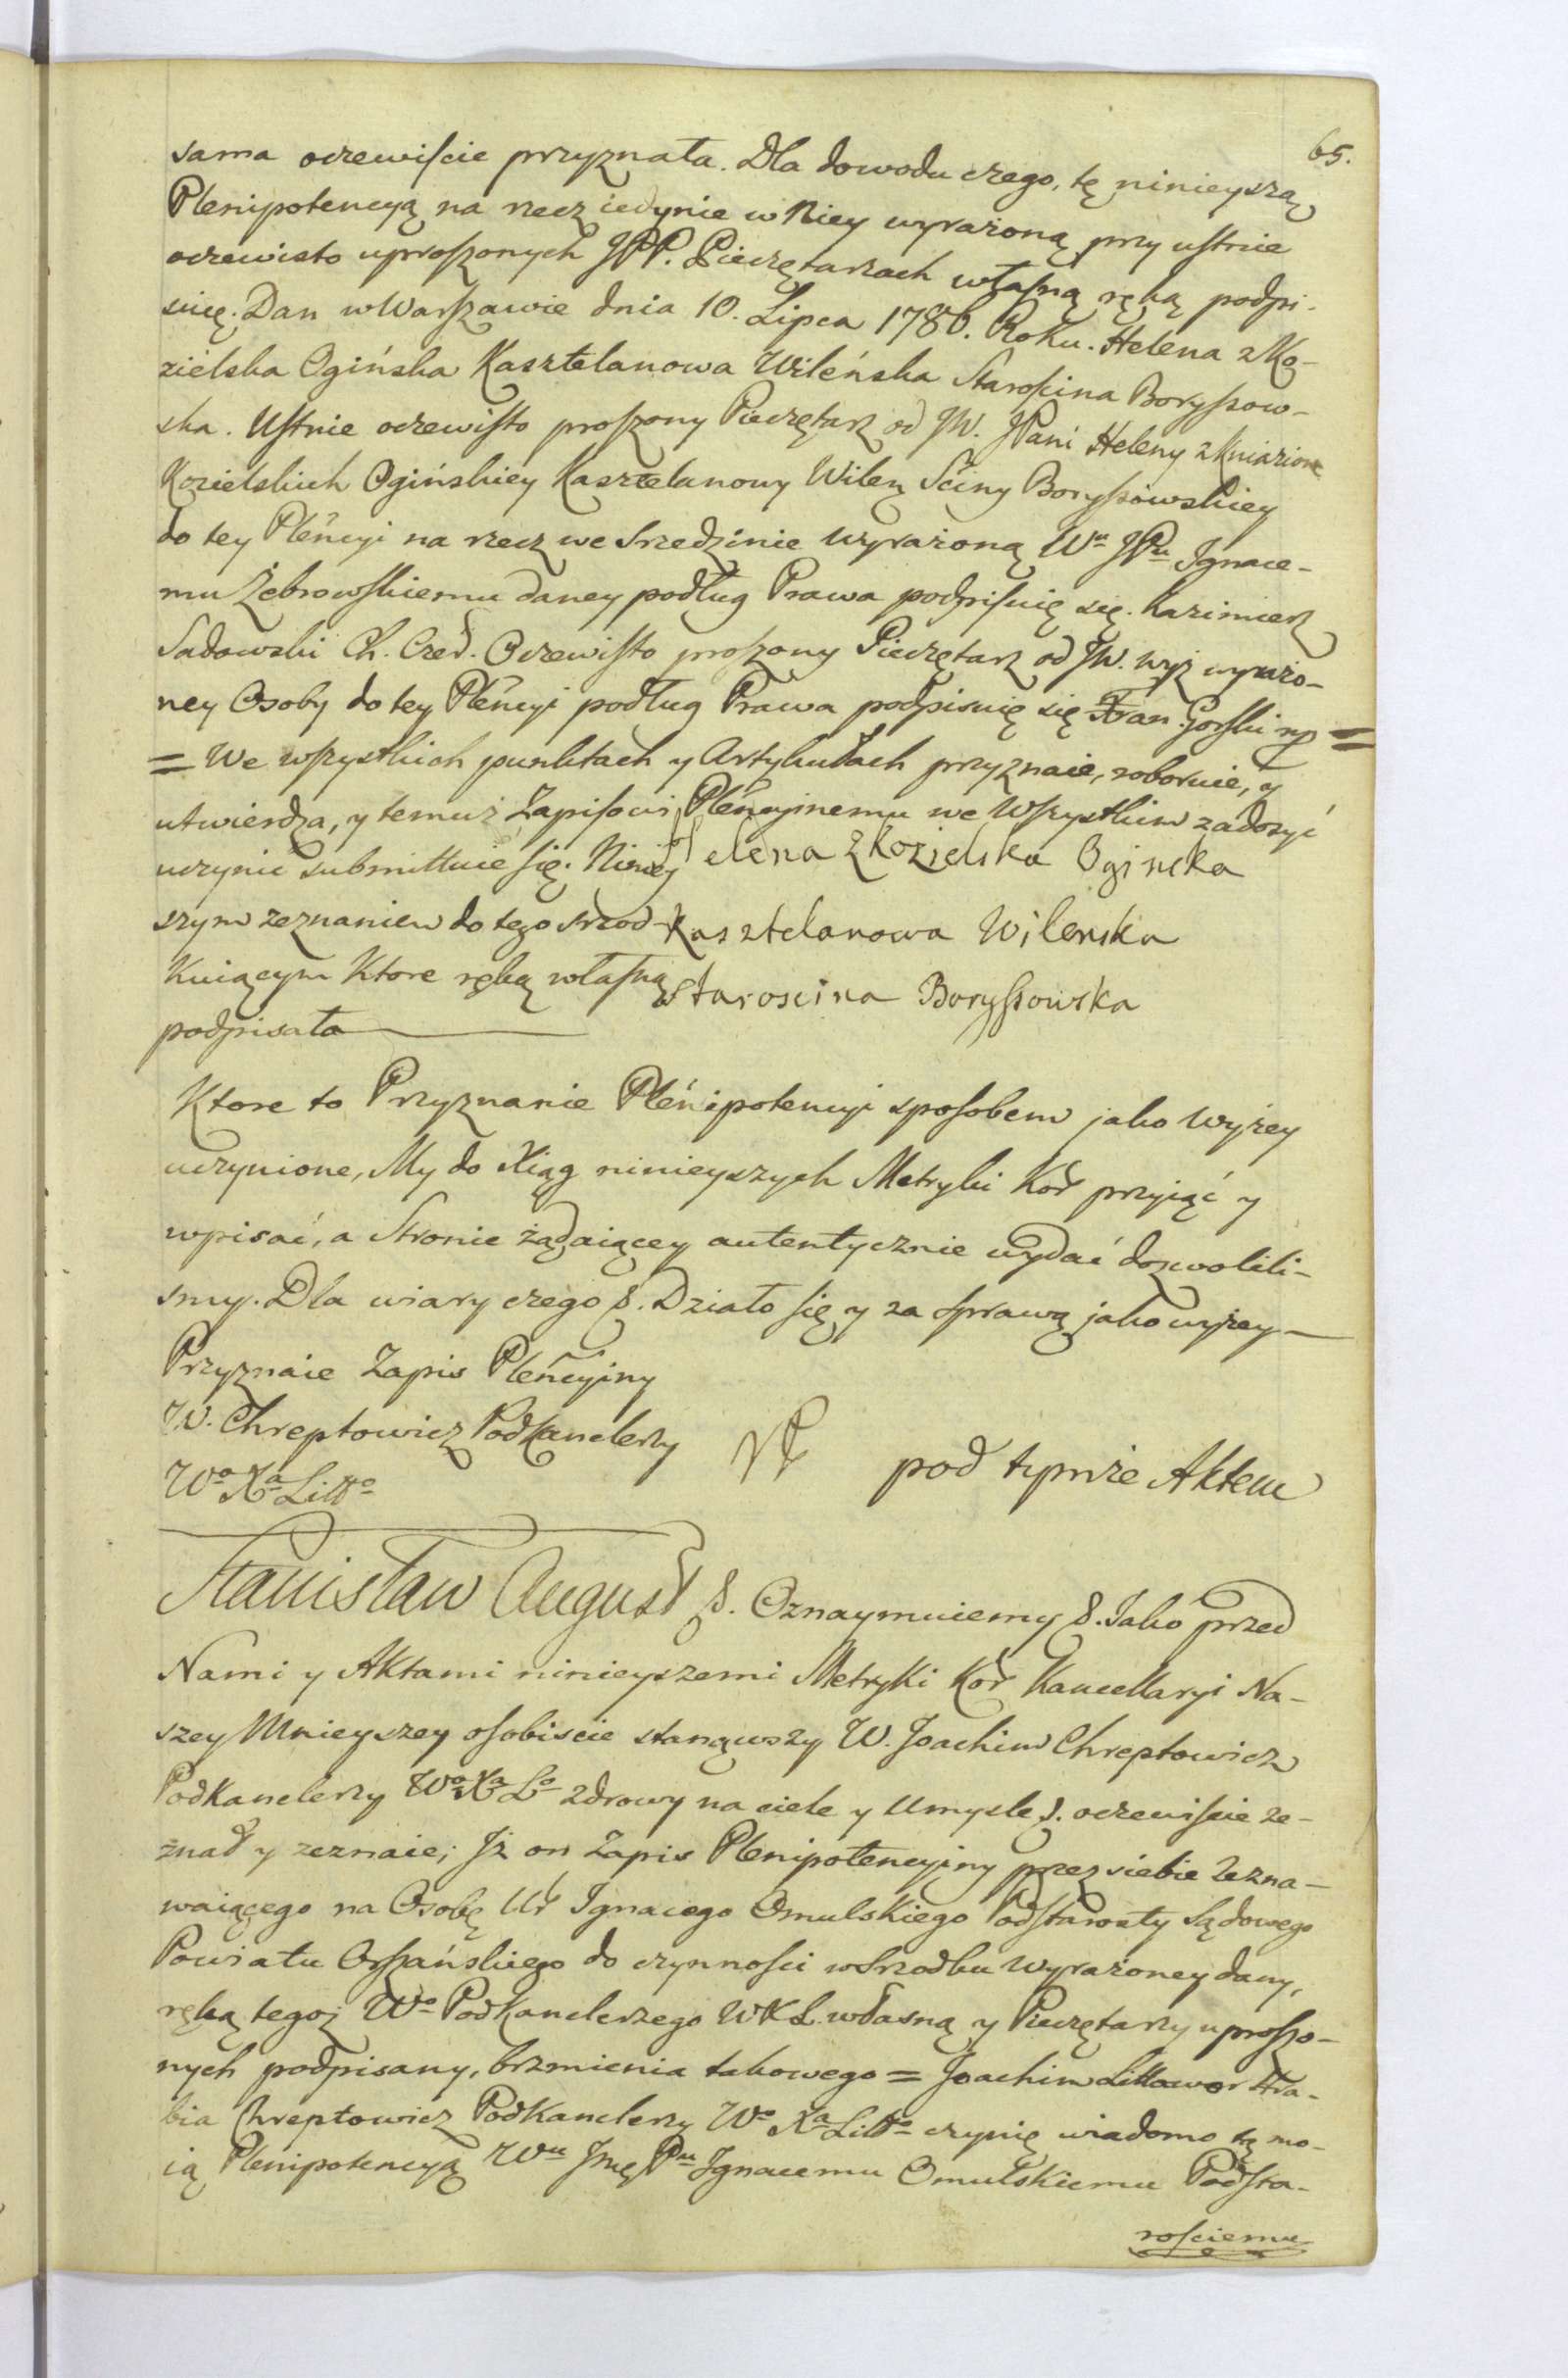 65.
sama oczewiście przyznała. Dla dowodu czego, tę ninieyszą
Plenipotencyą na rzecz iedynie w Niey wyrażoną przy ustnie
oczewisto uproszonych JPP. Pieczętarzach własną ręką podpi-
suię. Dan w Warszawie dnia 10. Lipca 1786. Roku. Helena z Ko-
zielska Ogińska Kasztelanowa Wileńska Starościna Boryssow-
ska. Ustnie oczewisto proszony Pieczętarz od JW. JPani Heleny z Kniaziow
Kozielskich Ogińskiey Kasztelanowy Wileń Sciny Boryssowskiey
do tey Pleńcyi na rzecz we srzedzinie wyrażoną Wu JPu Ignace-
mu Żebrowskiemu daney podług Prawa podpisuię się. Kazimierz
Sadowski Ch. Czer. Oczewisto proszony Pieczętarz od JW. wyż wyrażo-
ney Osoby do tey Pleńcyi podług Prawa podpisuię się Fran. Gorski mp =
= We wszystkich punktach y Artykułach przyznaie, roboruie, y
utwierdza, y temuż Zapisowi Pleńcyinemu we Wszystkim zadosyć
uczynić submittuie się. Niniey Helena z Kozielska Oginska
szym zeznaniem do tego srzod- Kasztelanowa Wilenska
Kuiącym Ktore ręką własną Staroscina Boryssowska
podpisała
Ktore to Przyznanie Pleńipotencyi sposobem jako wyżey
uczynione, My do Xiąg ninieyszych Metryki Kor przyiąć y
wpisać, a Stronie żądaiącey autentycznie wydać dozwolili-
smy. Dla wiary czego &. Działo się y za sprawą jako wyżey
Przyznaie Zapis Pleńcyiny
W. Chreptowicz Podkanclerzy
Wo Xa Litto
pod tymże Aktem
Stanisław August &. Oznaymuiemy &. Jako przed
Nami y Aktami ninieyszemi Metryki Kor Kancellaryi Na-
szey Mnieyszey osobiscie stanąwszy W. Joachim Chreptowicz
Podkanclerzy Wo Xa Lo zdrowy na ciele y Umysle &. oczewiscie ze-
znał y zeznaie; Jż on Zapis Plenipotencyiny przez siebie Zezna-
waiącego na Osobę Ur Ignacego Omulskiego Podstarosty Sądowego
Powiatu Orszańskiego do czynnosci w srzodku wyrażoney dany,
ręką tegoż Wo Podkanclerzego WXL własną y Pieczętarzy uproszo-
nych podpisany, brzmienia takowego = Joachim Littawor Hra-
bia Chreptowicz Podkanclerzy Wo Xa Litto czynię wiadomo tą mo-
ią Plenipotencyą Wu Jmę Pu Ignacemu Omulskiemu Podsta-
rosciemu